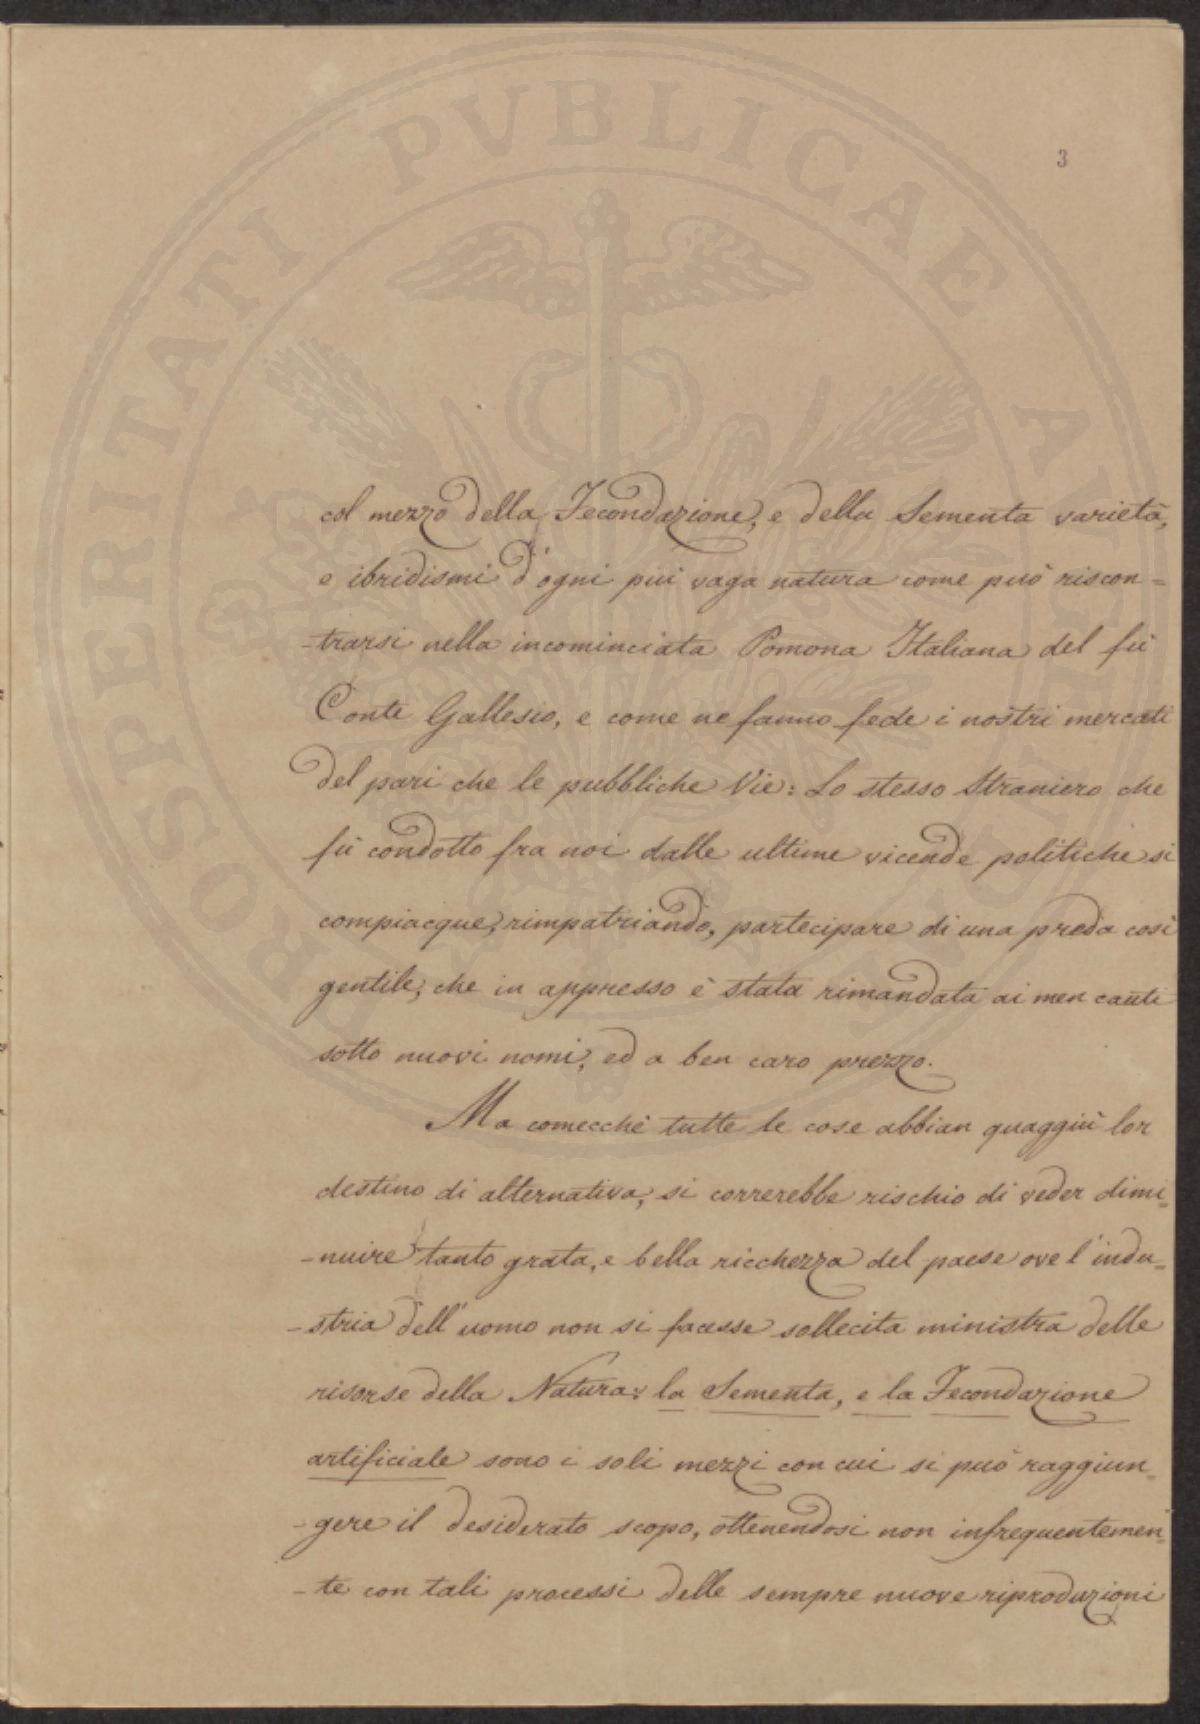 3
col mezzo della Fecondazione, e della Sementa varietà,
e ibridismi d'ogni più vaga natura come può riscon=
-trarsi nella incominciata Pomona Italiana del fù
Conte Gallesio, e come ne fanno fede i nostri mercati
del pari che le pubbliche Vie: Lo stesso Straniero che
fù condotto fra noi dalle ultime vicende politiche si
compiacque, rimpatriando, partecipare di una preda così
gentile, che in appresso è stata rimandata ai men cauti
sotto nuovi nomi, ed a ben caro prezzo.
Ma comecchè tutte le cose abbian quaggiù lor
destino di alternativa, si correrebbe rischio di veder dimi=
-nuire tanto grata, e bella ricchezza del paese ove l'indu=
-stria dell'uomo non si facesse sollecita ministra delle
risorse della Natura: la Sementa, e la Fecondazione
artificiale sono i soli mezzi con cui si può raggiun=
-gere il desiderato scopo, ottenendosi non infrequentemen=
-te con tali processi delle sempre nuove riproduzioni
PROSPERITATI PVBLICAE